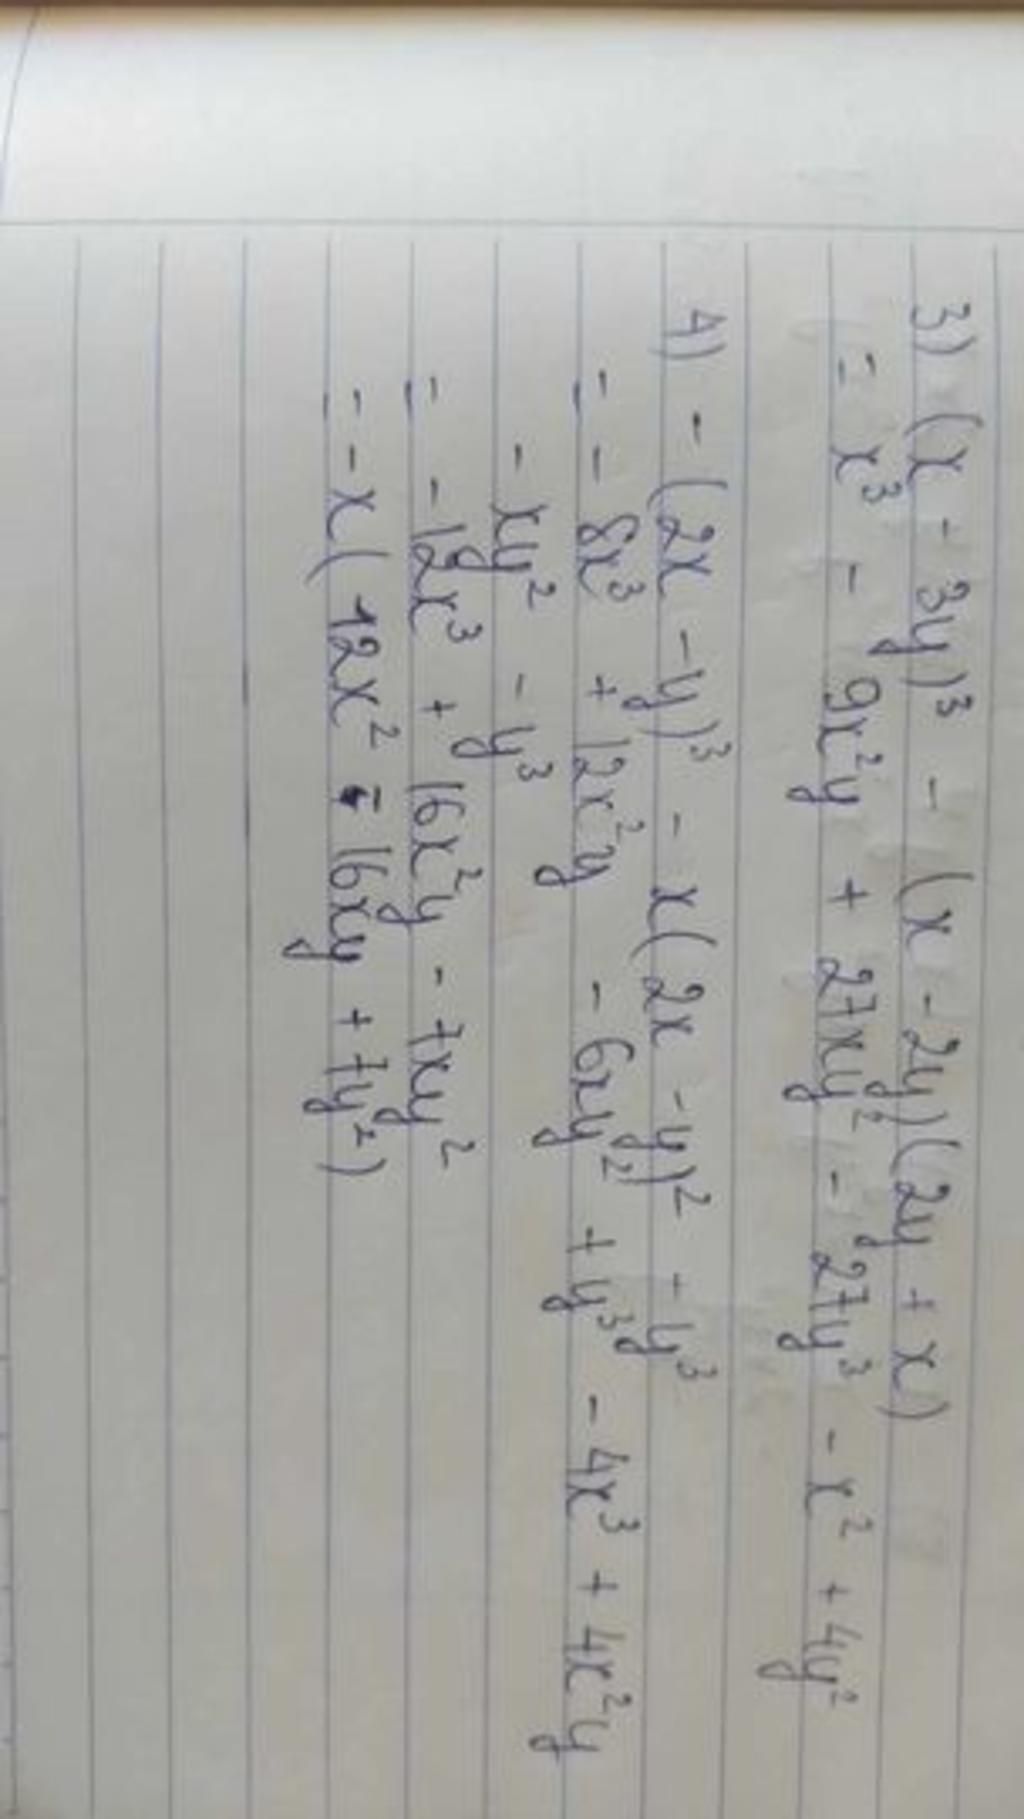 3) (x - 3y)³ - (x - 2y)(2y + x)
= x³ - 9x²y + 27xy² - 27y³ - x² + 4y²
4) - (2x - y)³ - x(2x - y)² - y³
= - 8x³ + 12x²y - 6xy² + y³ - 4x³ + 4x²y
- xy² - y³
= - 12x³ + 16x²y - 7xy²
= - x( 12x² - 16xy + 7y²)